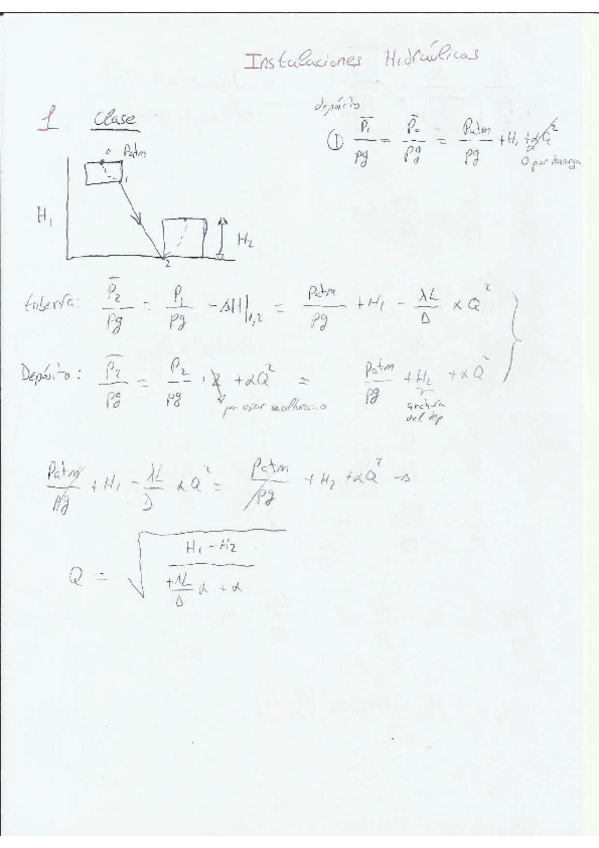 Instalaciones Hidráulicas
1 Clase
depósito
① P̅₁/ρg = P̅₀/ρg = Patm/ρg + H₁ + αQ²
0 por descarga
0 Patm
1
H₁
H₂
2
tubería: P̅₂/ρg = P̅₁/ρg - ΔH|₁,₂ = Patm/ρg + H₁ - λL/D αQ²
Depósito: P̅₂/ρg = P₂/ρg + z + αQ² = Patm/ρg + H₂ + αQ²
por estar a altura 0
altura del dep
Patm/ρg + H₁ - λL/D αQ² = Patm/ρg + H₂ + αQ² →
Q = √((H₁ - H₂)/(+λL/D α + α))